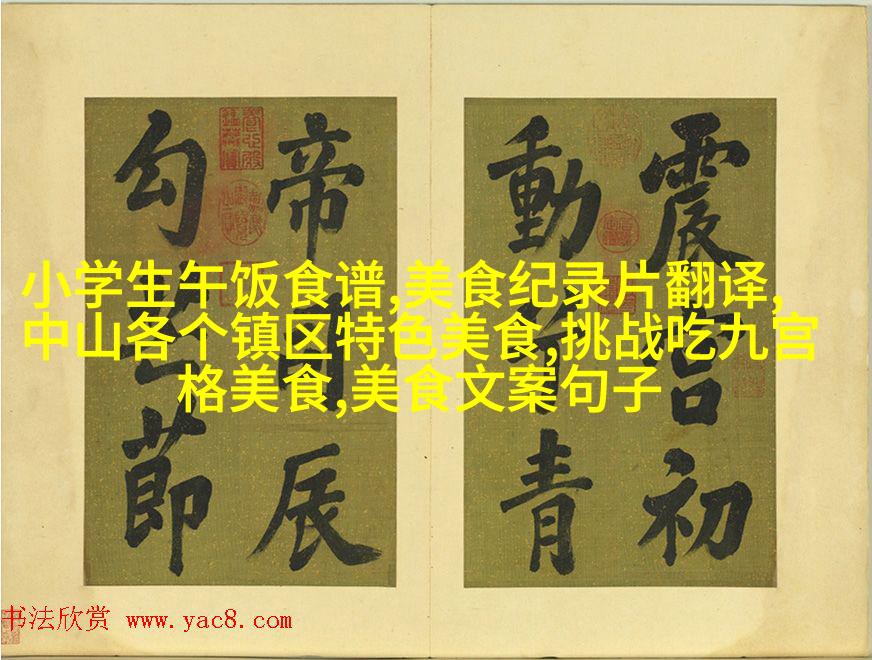 震宫初
動青
帝辰
勾節
小学生午饭食谱,美食纪录片翻译,
中山各个镇区特色美食,挑战吃九宫
格美食,美食文案句子
书法欣赏 www.yac8.com